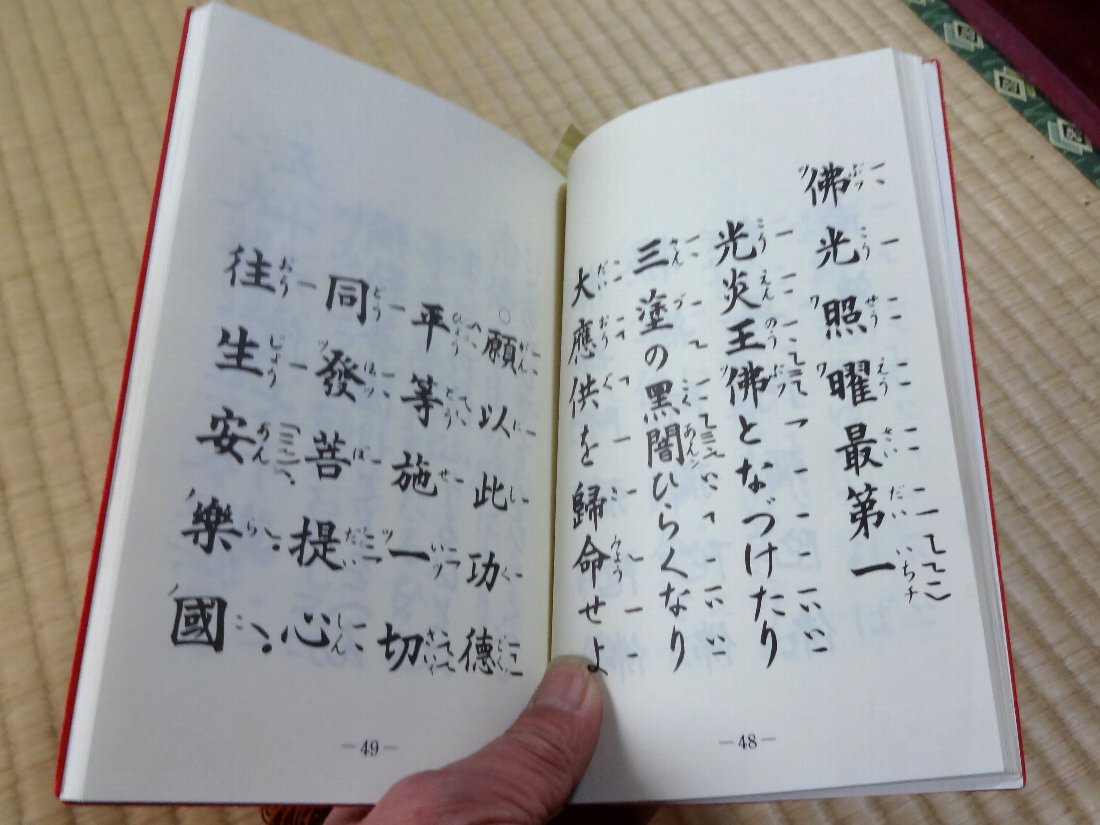 佛光照曜最第一
光炎王佛となづけたり
三塗の黒闇ひらくなり
大應供を歸命せよ
—48—
○願以此功德
平等施一切
同發菩提心
往生安樂國
—49—